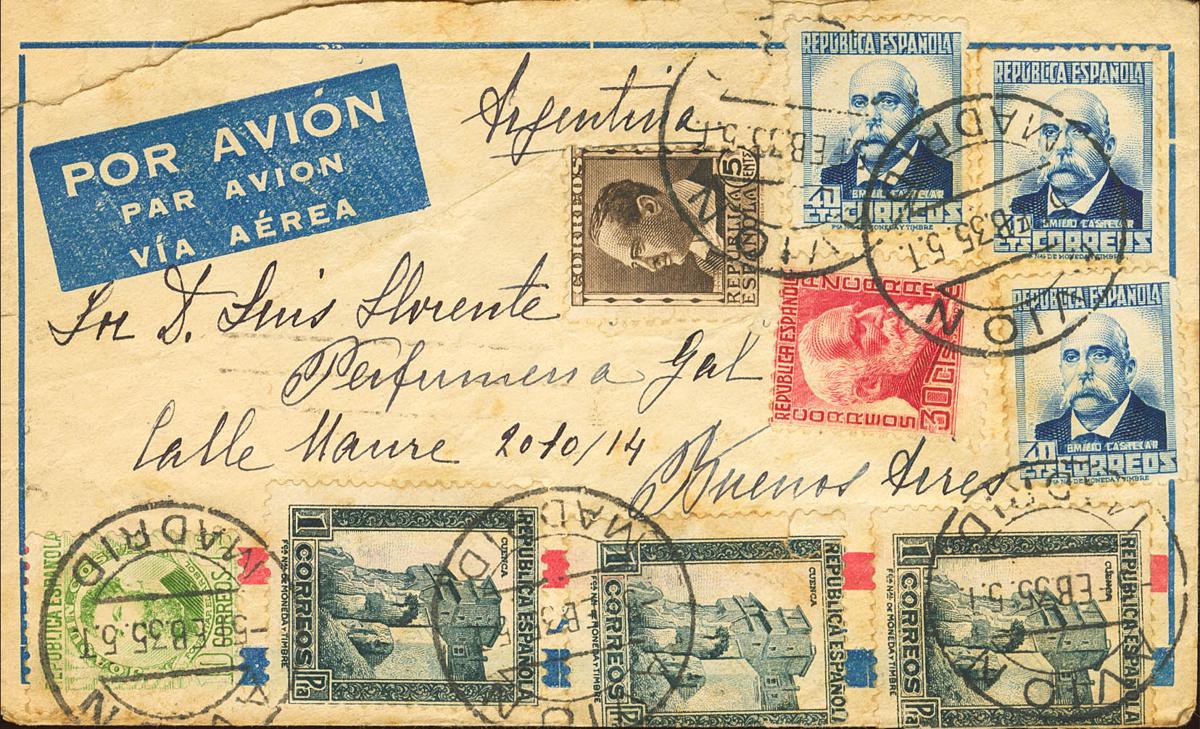 POR AVIÓN
PAR AVION
VÍA AÉREA
Argentina
Sor D. Luis Llorente
Perfumeria Gal
Calle Maure 2010/14
Buenos Aires
CORREOS
5 CENTS
REPUBLICA
ESPAÑOLA
REPÚBLICA ESPAÑOLA
EMILIO CASTELAR
40
CTS CORREOS
FCA NAL DE MONEDA Y TIMBRE
REPÚBLICA ESPAÑOLA
EMILIO CASTELAR
CTS CORREOS
REPÚBLICA ESPAÑOLA
EMILIO CASTELAR
40
CTS CORREOS
REPÚBLICA ESPAÑOLA
CORREOS
30 CTS
AZCARATE
MADRID
FEB.35.5.T
AVION
REPUBLICA ESPAÑOLA
10 CORREOS
MADRID
FEB.35.5.T
AVION
1 CORREOS 1 Pta
FCA NAL DE MONEDA Y TIMBRE
CUENCA
REPÚBLICA ESPAÑOLA
MADRID
1 CORREOS 1 Pta
FCA NAL DE MONEDA Y TIMBRE
CUENCA
REPÚBLICA ESPAÑOLA
1 CORREOS 1 Pta
FCA NAL DE MONEDA Y TIMBRE
CUENCA
REPÚBLICA ESPAÑOLA
MADRID
FEB.35.5.T
AVION